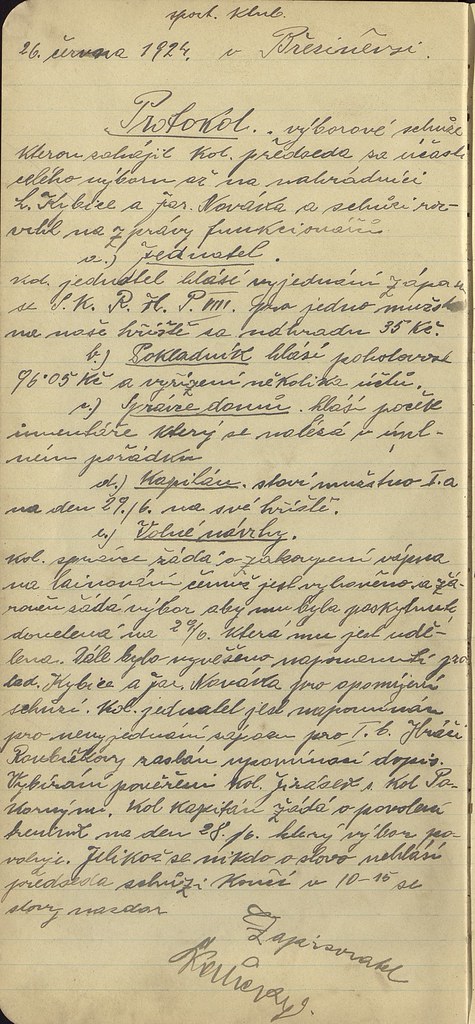 sport. klub.
26. června 1924. v Březiněvsi.
Protokol. výborové schůze
kterou zahájil kol. předseda za účasti
celého výboru až na náhradníci
L. Kybice a Jar. Nováka a schůzi roz-
vrhl na zprávy funkcionářů
a.) Jednatel.
kol. jednatel hlásí vyjednání zápasu
se S. K. R. H. P. VIII. pro jedno mužstvo
na naše hřiště za náhradu 35 Kč.
b.) Pokladník hlásí hotovost
96·05 Kč a vyřízení několika účtů.
c.) Správce domů. hlásí počet
inventáře který se nalézá v úpl-
ném pořádku
d.) Kapitán. staví mužstvo I.a
na den 29./6. na své hřiště.
e.) Volné návrhy.
Kol. správce žádá o zakoupení vápna
na lainování čemuž jest vyhověno a zá-
roveň žádá výbor aby mu byla poskytnuta
dovolená na 29/6. která mu jest udě-
lena. Dále bylo vyvěšeno napomenutí pro
Lad. Kybice a Jar. Nováka pro opomíjení
schůzí. Kol. jednatel jest napomínán
pro nevyjednání zápasu pro I. b. Hráči
Roubíčkovy zaslán upomínací dopis.
Vybíráním pověřeni kol. Jirásek s kol Po-
korným. Kol kapitán žádá o povolení
na den 28./6. který výbor po-
voluje. Jelikož se nikdo o slovo nehlásí
předseda schůzi končí v 10-15 se
slovy nazdar
Zapisovatel